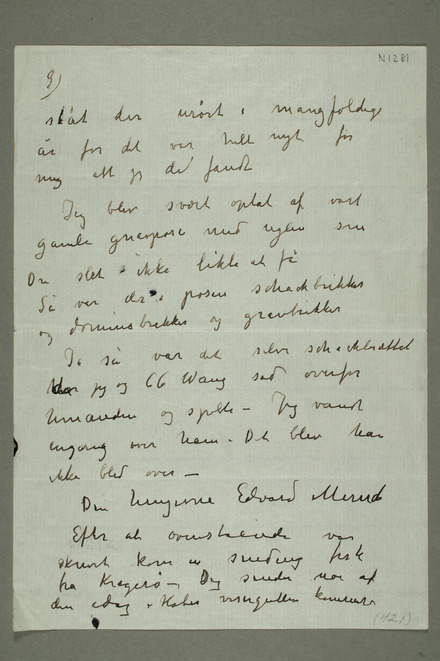 N1281
9)
stått der urørt i mangfoldige
år for det var helt nyt for
mig att jeg det fandt
Jeg blev svært optat af vort
gamle gnavpose med uglen som
Du slet ikke likte at få
Så var der i posen schackbrikker
og dominobrikker og gnavbrikker
Ja så var det selve schackbrættet
jeg og CG Wang sad overfor
hinanden og spilte – Jeg vandt
engang over ham – Det blev han
ikke blid over –
Din hengivne Edvard Munch
Efter at ovenstående var
skrevt kom en sending fisk
fra Kragerø – Jeg sender noe af
den idag – Håber kommer
(421)